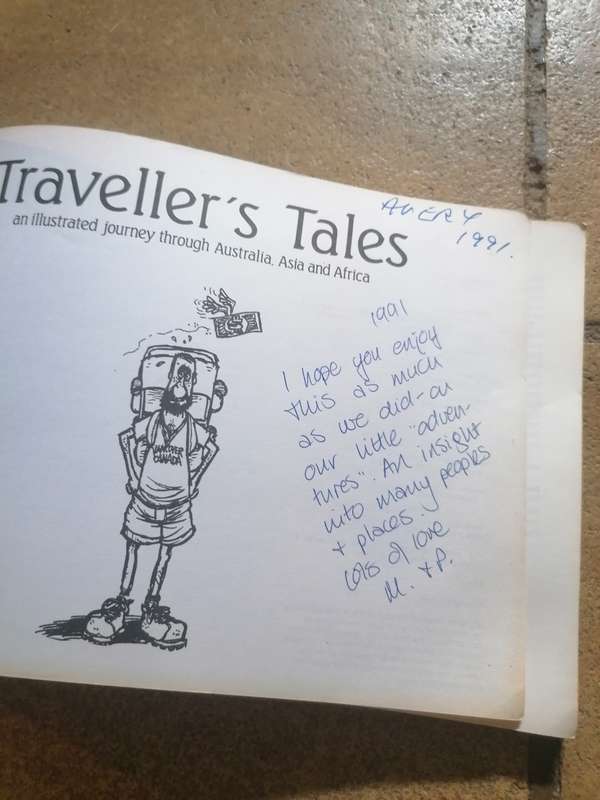 Traveller's Tales
an illustrated journey through Australia, Asia and Africa
AVERY
1991.
1991
I hope you enjoy
this as much
as we did - on
our little "adven-
tures". An insight
into many peoples
+ places.
Lots of love
M. + P.
CANADA